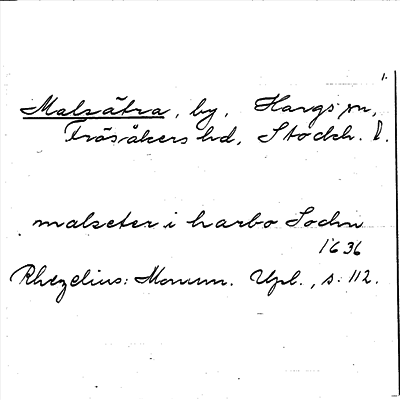 1.
Malsätra, by, Hargs sn,
Frösåkers hd, Stockh. l.
malseter i harbo Sochn
1636
Rhezelius: Monum. Upl., s. 112.